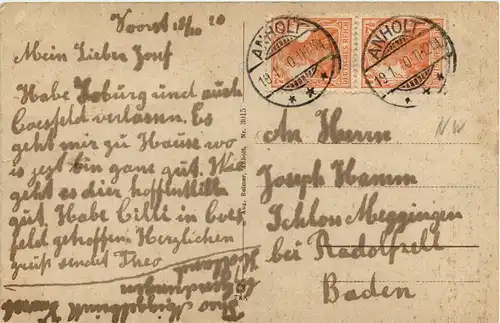 Voorst 18/10 20
Mein Lieber Josef
Habe Isburg und auch
Coesfeld verlassen. Es
geht mir zu Hause wo
is jezt bin ganz gut. Wie
geht es dier hoffentlich
gut. Habe Cilli in Coes
feld getroffen. Herzlichen
gruß sendet Theo
Theo
Voorst
Gendringen
Holland
ANHOLT
ANHOLT
Aug. Reimer, Anholt. Nr. 3015
An Herrn
Joseph Hamm
Schloss Meggingen
bei Radolfzell
Baden
NW